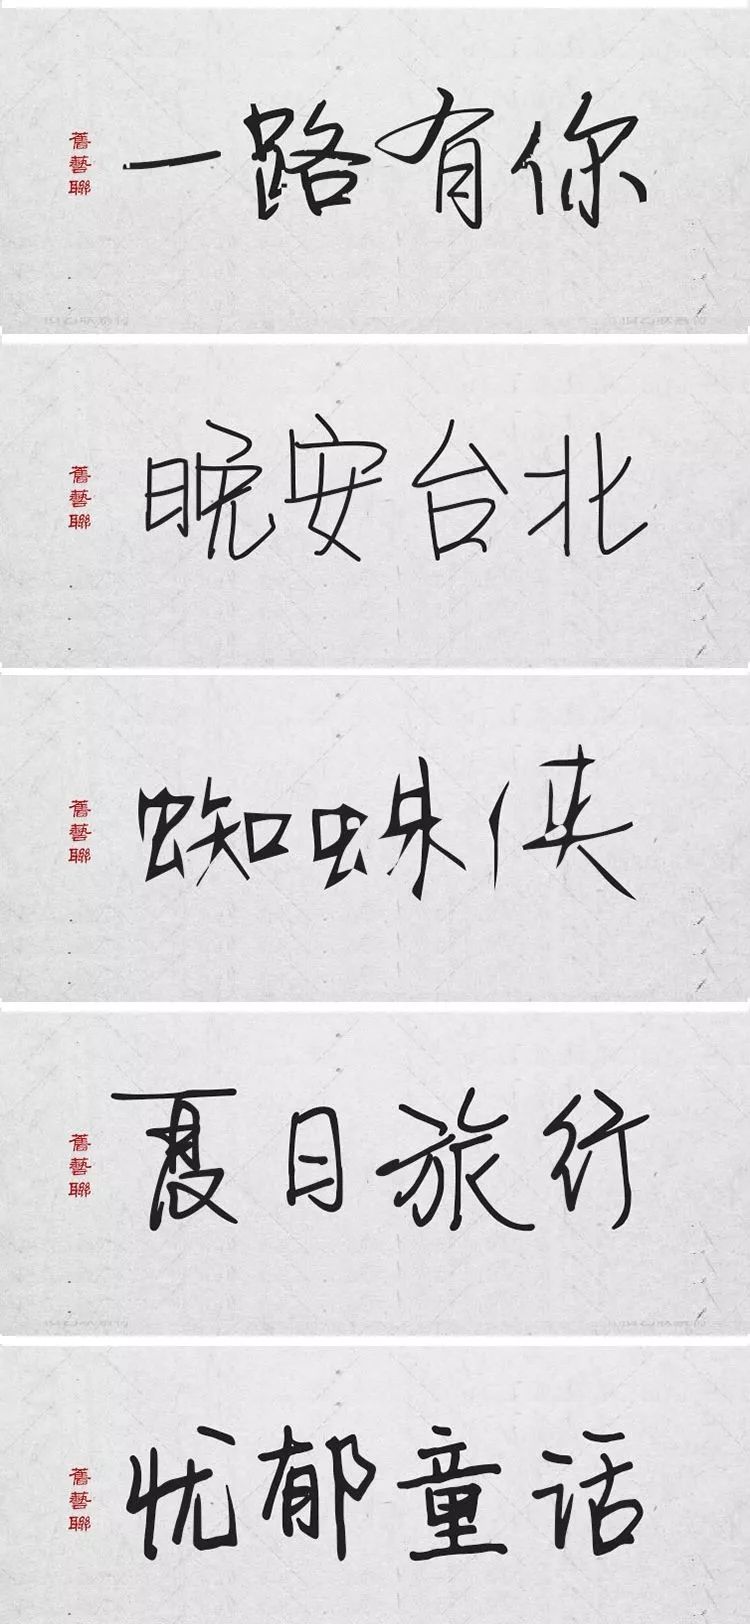 舊藝聯
一路有你
舊藝聯
晚安台北
舊藝聯
蜘蛛侠
舊藝聯
夏日旅行
舊藝聯
忧郁童话